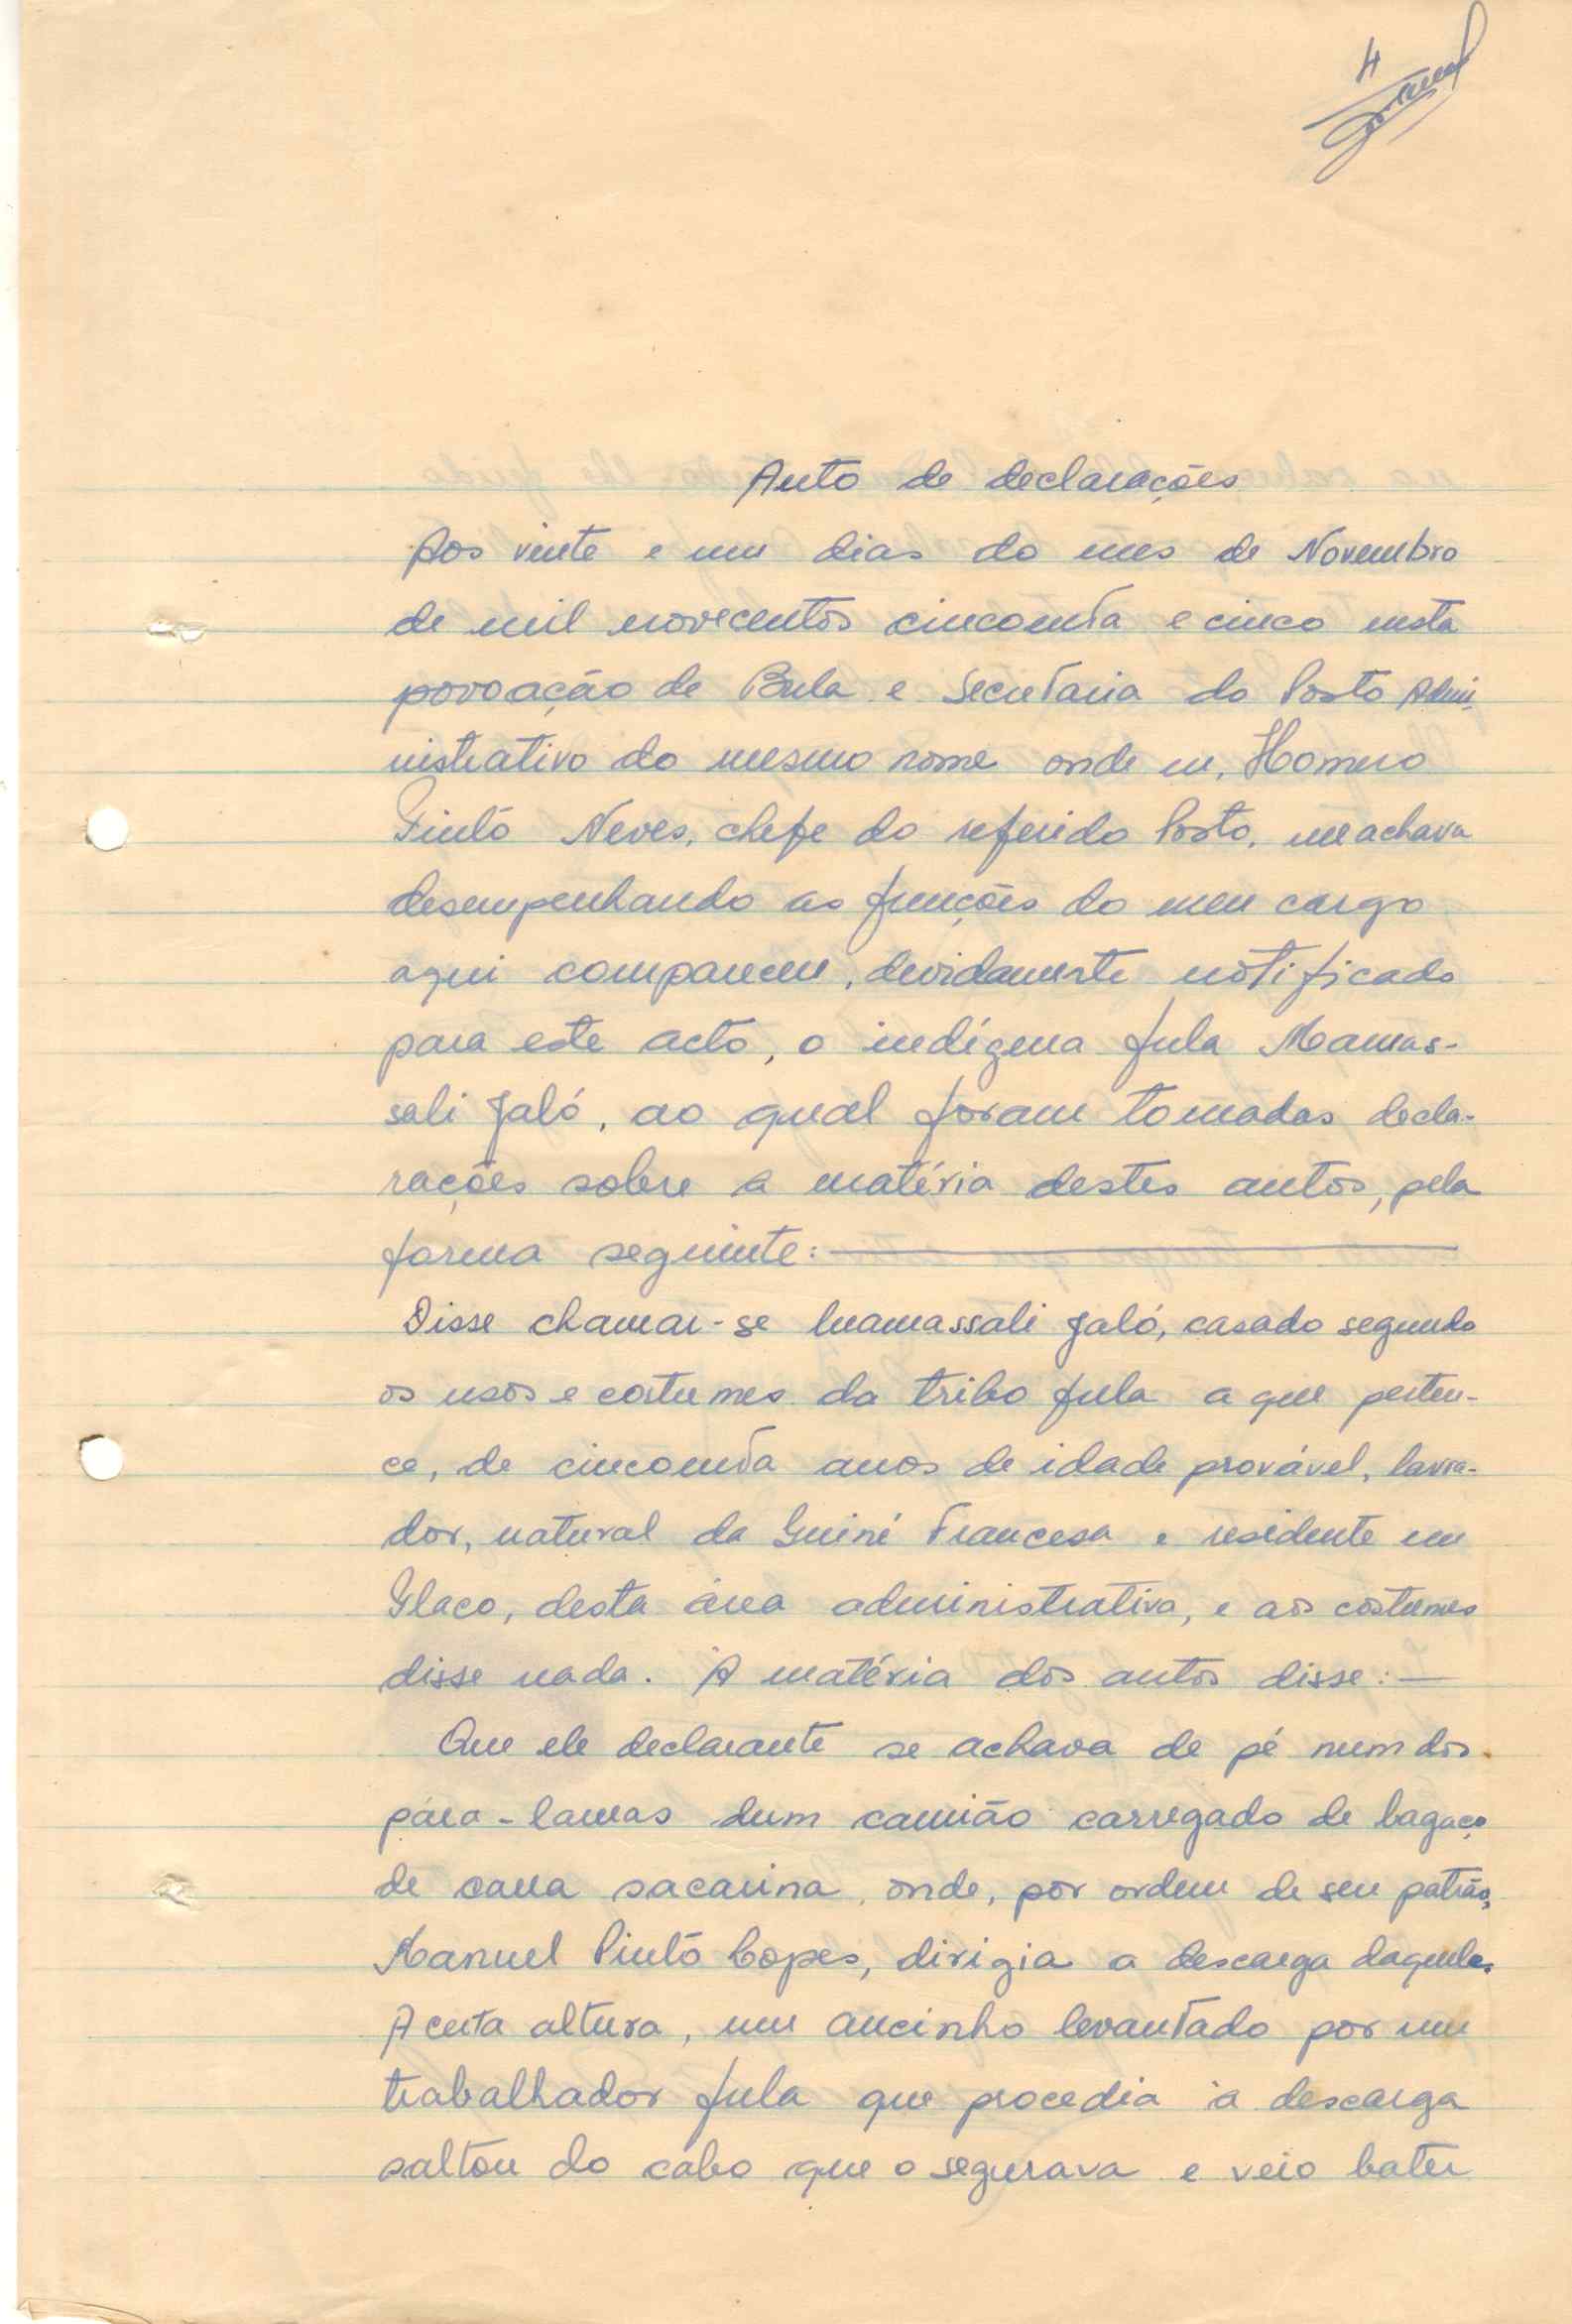 4
Auto de declarações
Aos vinte e um dias do mes de Novembro
de mil novecentos cincoenta e cinco nesta
povoação de Bula e Secretaria do Posto Admi-
nistrativo do mesmo nome onde eu, Homero
Pinto Neves, chefe do referido Posto, me achava
desempenhando as funções do meu cargo
aqui compareceu, devidamente notificado
para este acto, o indígena fula Mamas-
sali Jaló, ao qual foram tomadas decla-
rações sobre a matéria destes autos, pela
forma seguinte:
Disse chamar-se Mamassali Jaló, casado segundo
os usos e costumes da tribo fula a que perten-
ce, de cincoenta anos de idade provável, lavra-
dor, natural da Guiné Francesa e residente em
Placo, desta área administrativa, e aos costumes
disse nada. À matéria dos autos disse:
Que ele declarante se achava de pé num dos
pára-lamas dum camião carregado de bagaço
de cana sacarina, onde, por ordem de seu patrão,
Manuel Pinto Lopes, dirigia a descarga daquele.
A certa altura, um ancinho levantado por um
trabalhador fula que procedia à descarga
saltou do cabo que o segurava e veio bater